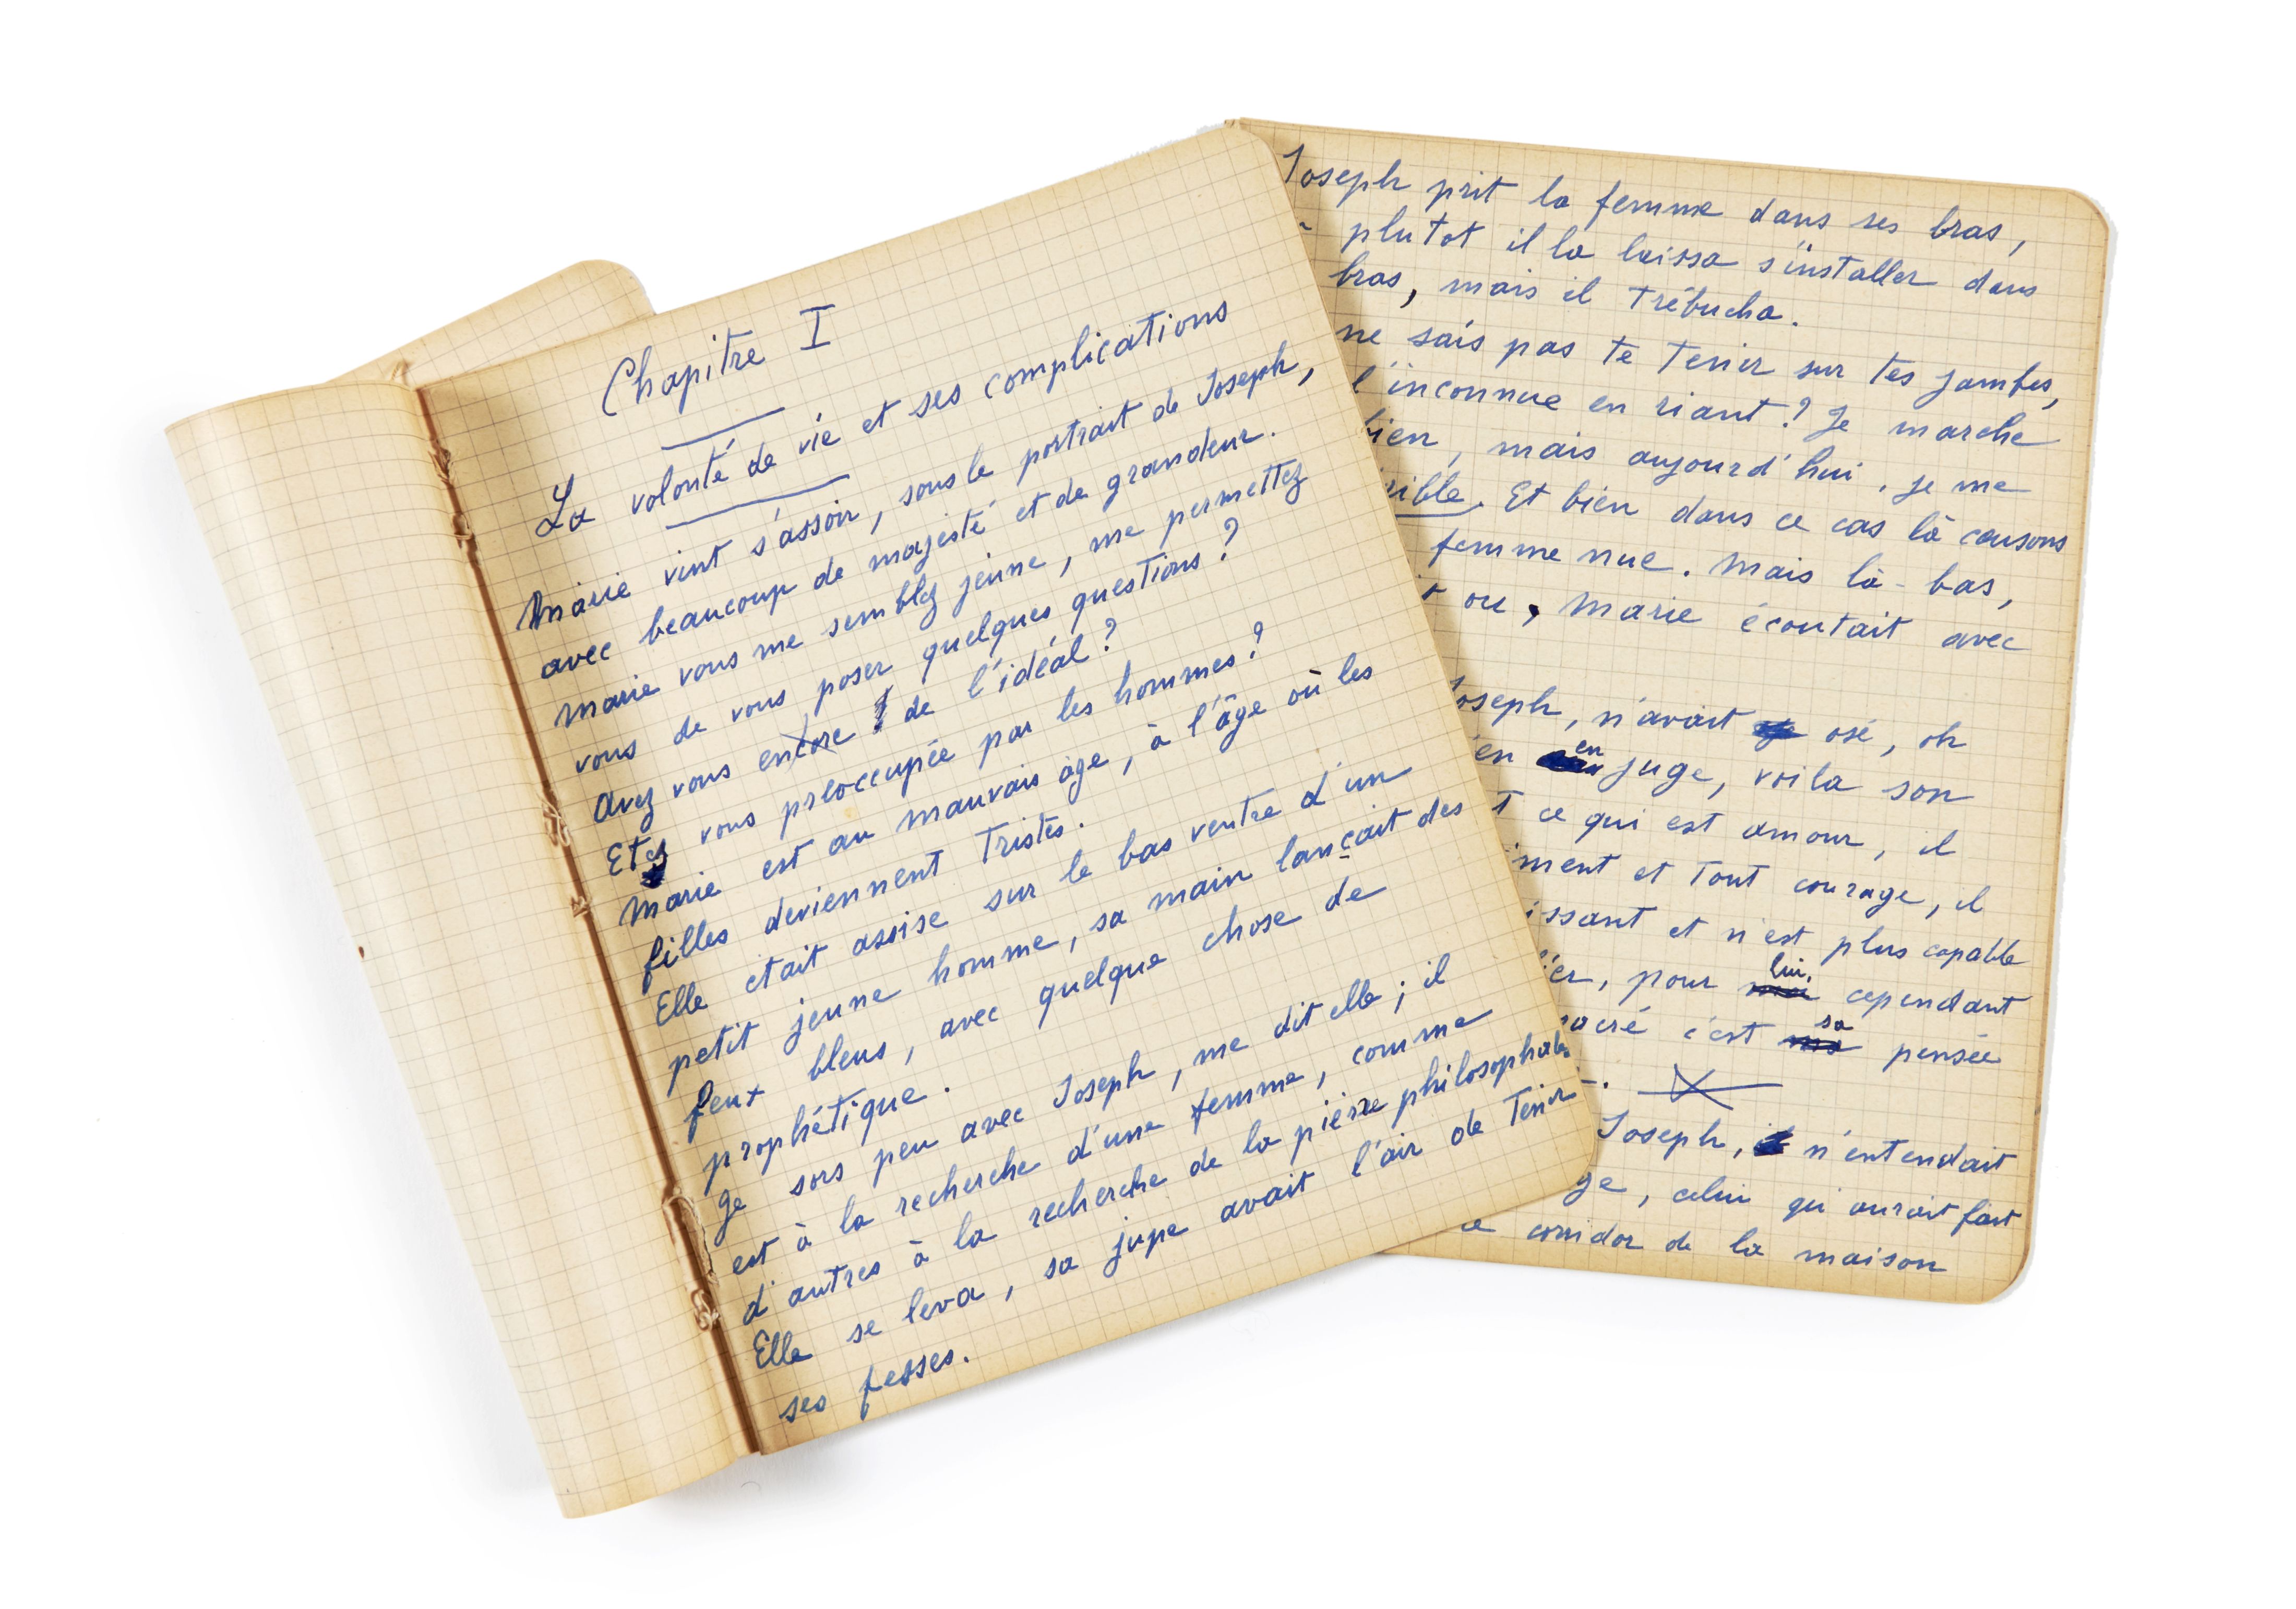 Chapitre I
La volonté de vie et ses complications
Marie vint s'assoir, sous le portrait de Joseph,
avec beaucoup de majesté et de grandeur.
Marie vous me semblez jeune, me permettez
vous de vous poser quelques questions ?
Avez vous encore de l'idéal ?
Etes vous préoccupée par les hommes ?
Marie est au mauvais âge, à l'âge où les
filles deviennent tristes.
Elle était assise sur le bas ventre d'un
petit jeune homme, sa main lançait des
feux bleus, avec quelque chose de
prophétique.
Je sors peu avec Joseph, me dit elle ; il
est à la recherche d'une femme, comme
d'autres à la recherche de la pierre philosophale
Elle se leva, sa jupe avait l'air de tenir
ses fesses.
Joseph prit la femme dans ses bras,
plutot il la laissa s'installer dans
bras, mais il trébucha.
ne sais pas te tenir sur tes jambes,
l'inconnue en riant ? Je marche
bien, mais aujourd'hui, je me
rible. Et bien dans ce cas là causons
femme nue. Mais là-bas,
ou, Marie écoutait avec
Joseph, n'avait osé, oh
en en juge, voila son
t ce qui est amour, il
iment et tout courage, il
issant et n'est plus capable
er, pour lui, cependant
sacré c'est sa pensée
Joseph, n'entendait
ge, celui qui aurait fait
ce corridor de la maison